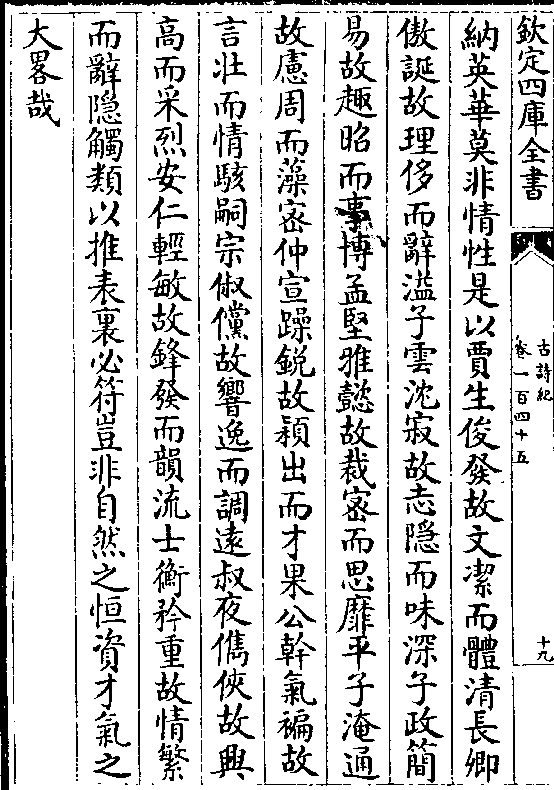 欽定四庫全書
古詩紀
卷一百四十五
十九
納英華莫非情性是以賈生俊發故文潔而體清長卿
傲誕故理侈而辭溢子雲沈寂故志隠而味深子政簡
易故趣昭而事博孟堅雅懿故裁宻而思靡平子淹通
故慮周而藻宻仲宣躁鋭故穎出而才果公幹氣褊故
言壮而情駭嗣宗俶儻故響逸而調逺叔夜儁俠故興
高而采烈安仁輕敏故鋒發而韻流士衡矜重故情繁
而辭隠觸類以推表裏必符豈非自然之恒資才氣之
大畧哉